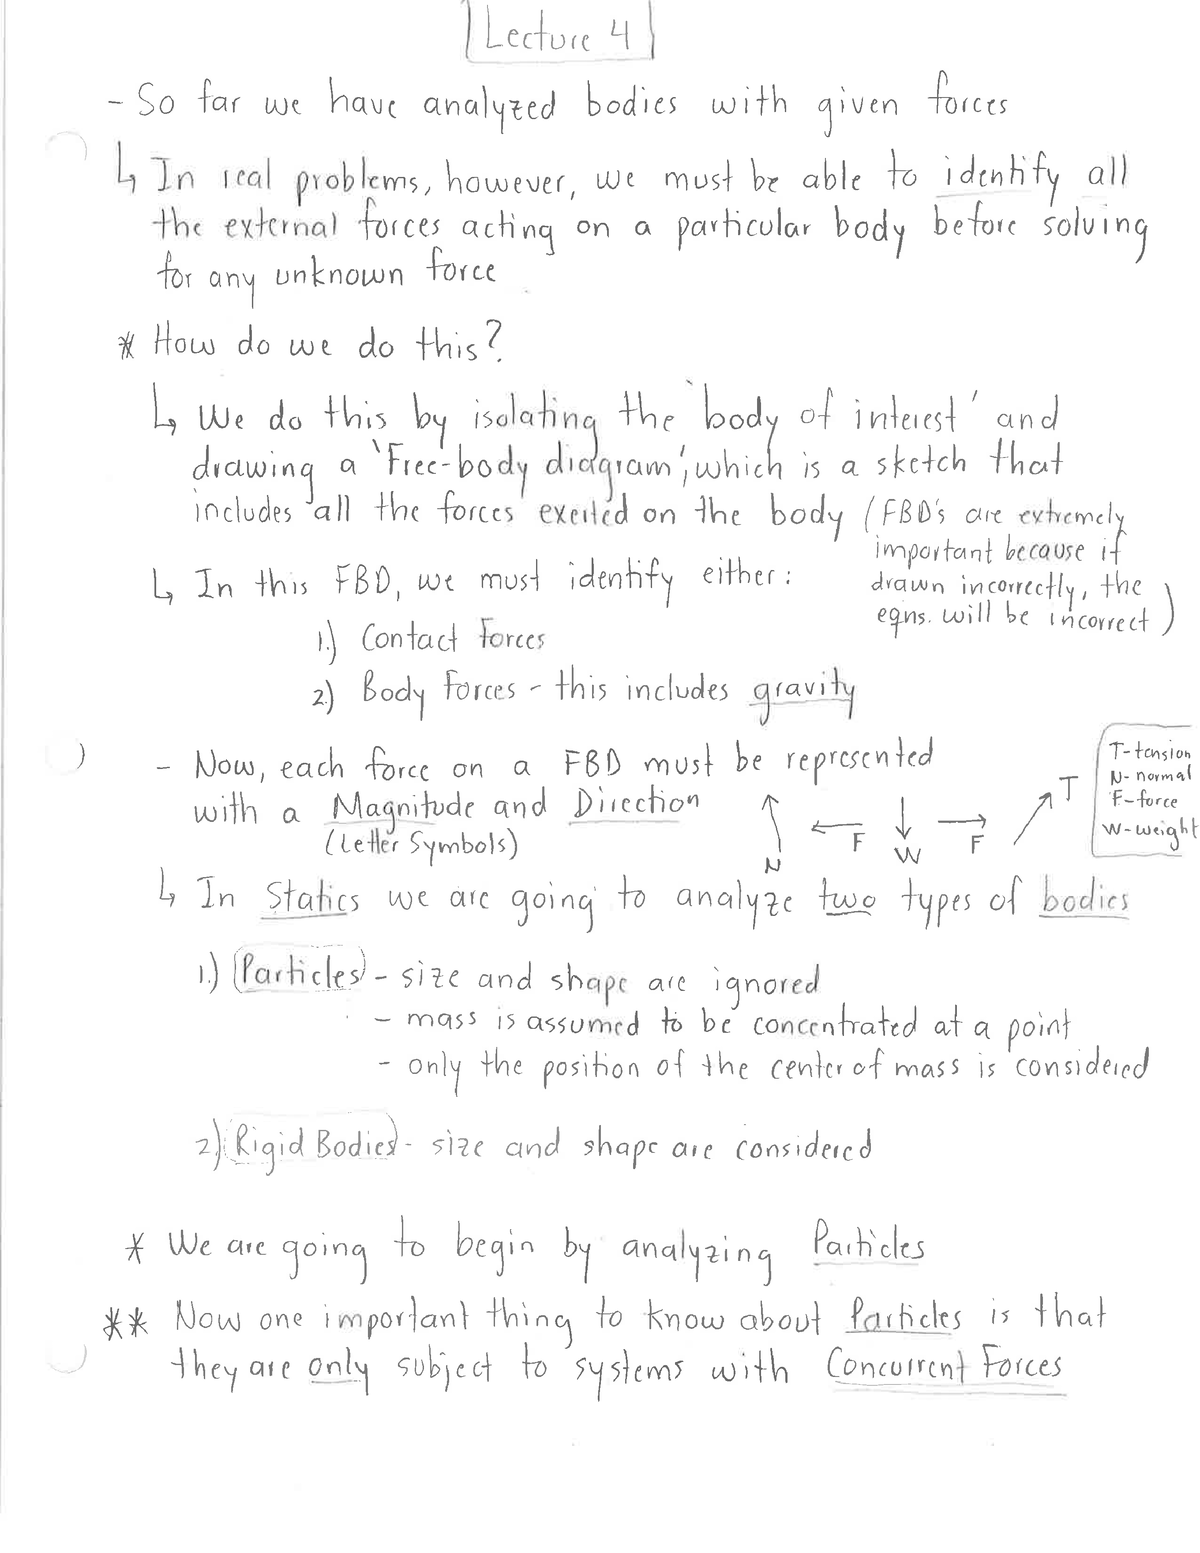 Lecture 4
- So far we have analyzed bodies with given forces
↳ In real problems, however, we must be able to identify all
the external forces acting on a particular body before solving
for any unknown force
* How do we do this?
↳ We do this by isolating the 'body of interest' and
drawing a 'Free-body diagram', which is a sketch that
includes all the forces exerted on the body (FBD's are extremely
important because if
drawn incorrectly, the
eqns. will be incorrect)
↳ In this FBD, we must identify either:
1.) Contact Forces
2.) Body Forces - this includes gravity
- Now, each force on a FBD must be represented
with a Magnitude and Direction
(Letter Symbols)
N
F
W
F
T
T-tension
N-normal
F-force
W-weight
↳ In Statics we are going to analyze two types of bodies
1.) Particles - size and shape are ignored
- mass is assumed to be concentrated at a point
- only the position of the center of mass is considered
2.) Rigid Bodies - size and shape are considered
* We are going to begin by analyzing Particles
** Now one important thing to know about Particles is that
they are only subject to systems with Concurrent Forces